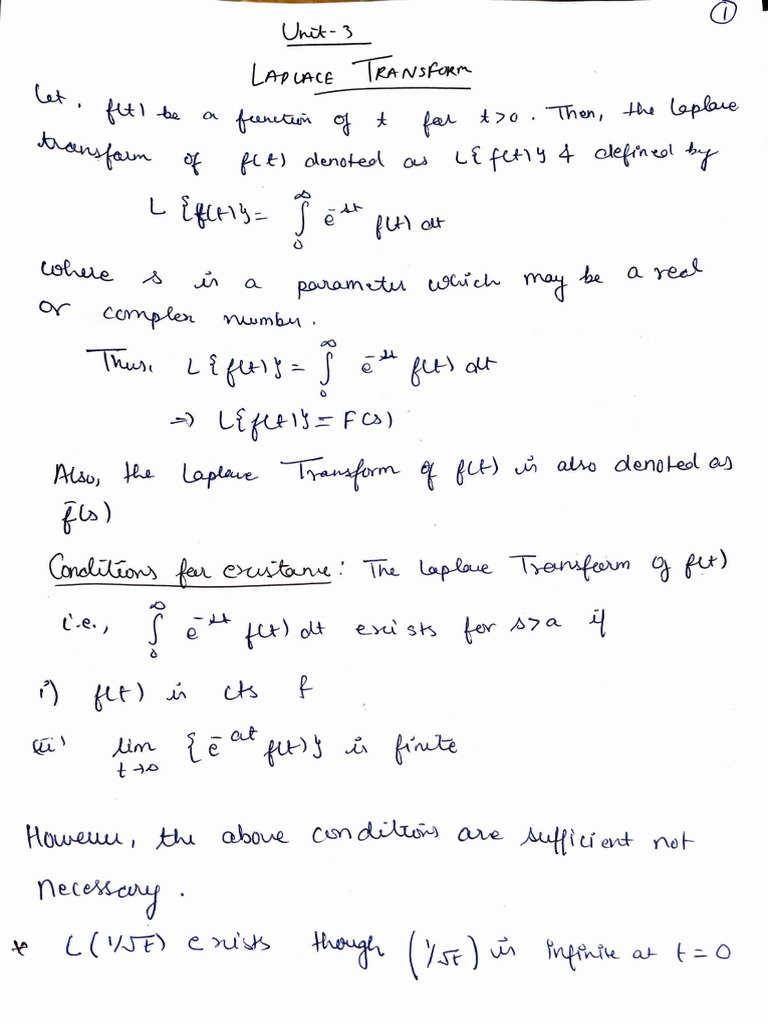 ①
Unit-3
LAPLACE TRANSFORM
Let, f(t) be a function of t for t>0. Then, the Laplace
transform of f(t) denoted as L{f(t)} & defined by
L{f(t)} = ∫₀^∞ e^{-st} f(t) dt
where s is a parameter which may be a real
or complex number.
Thus, L{f(t)} = ∫₀^∞ e^{-st} f(t) dt
⇒ L{f(t)} = F(s)
Also, the Laplace Transform of f(t) is also denoted as
f̄(s)
Conditions for existance: The Laplace Transform of f(t)
i.e., ∫₀^∞ e^{-st} f(t) dt exists for s>a if
i) f(t) is cts &
(ii) lim_{t→∞} {e^{-at} f(t)} is finite
However, the above conditions are sufficient not
necessary.
* L(1/√t) exists though (1/√t) is infinite at t=0